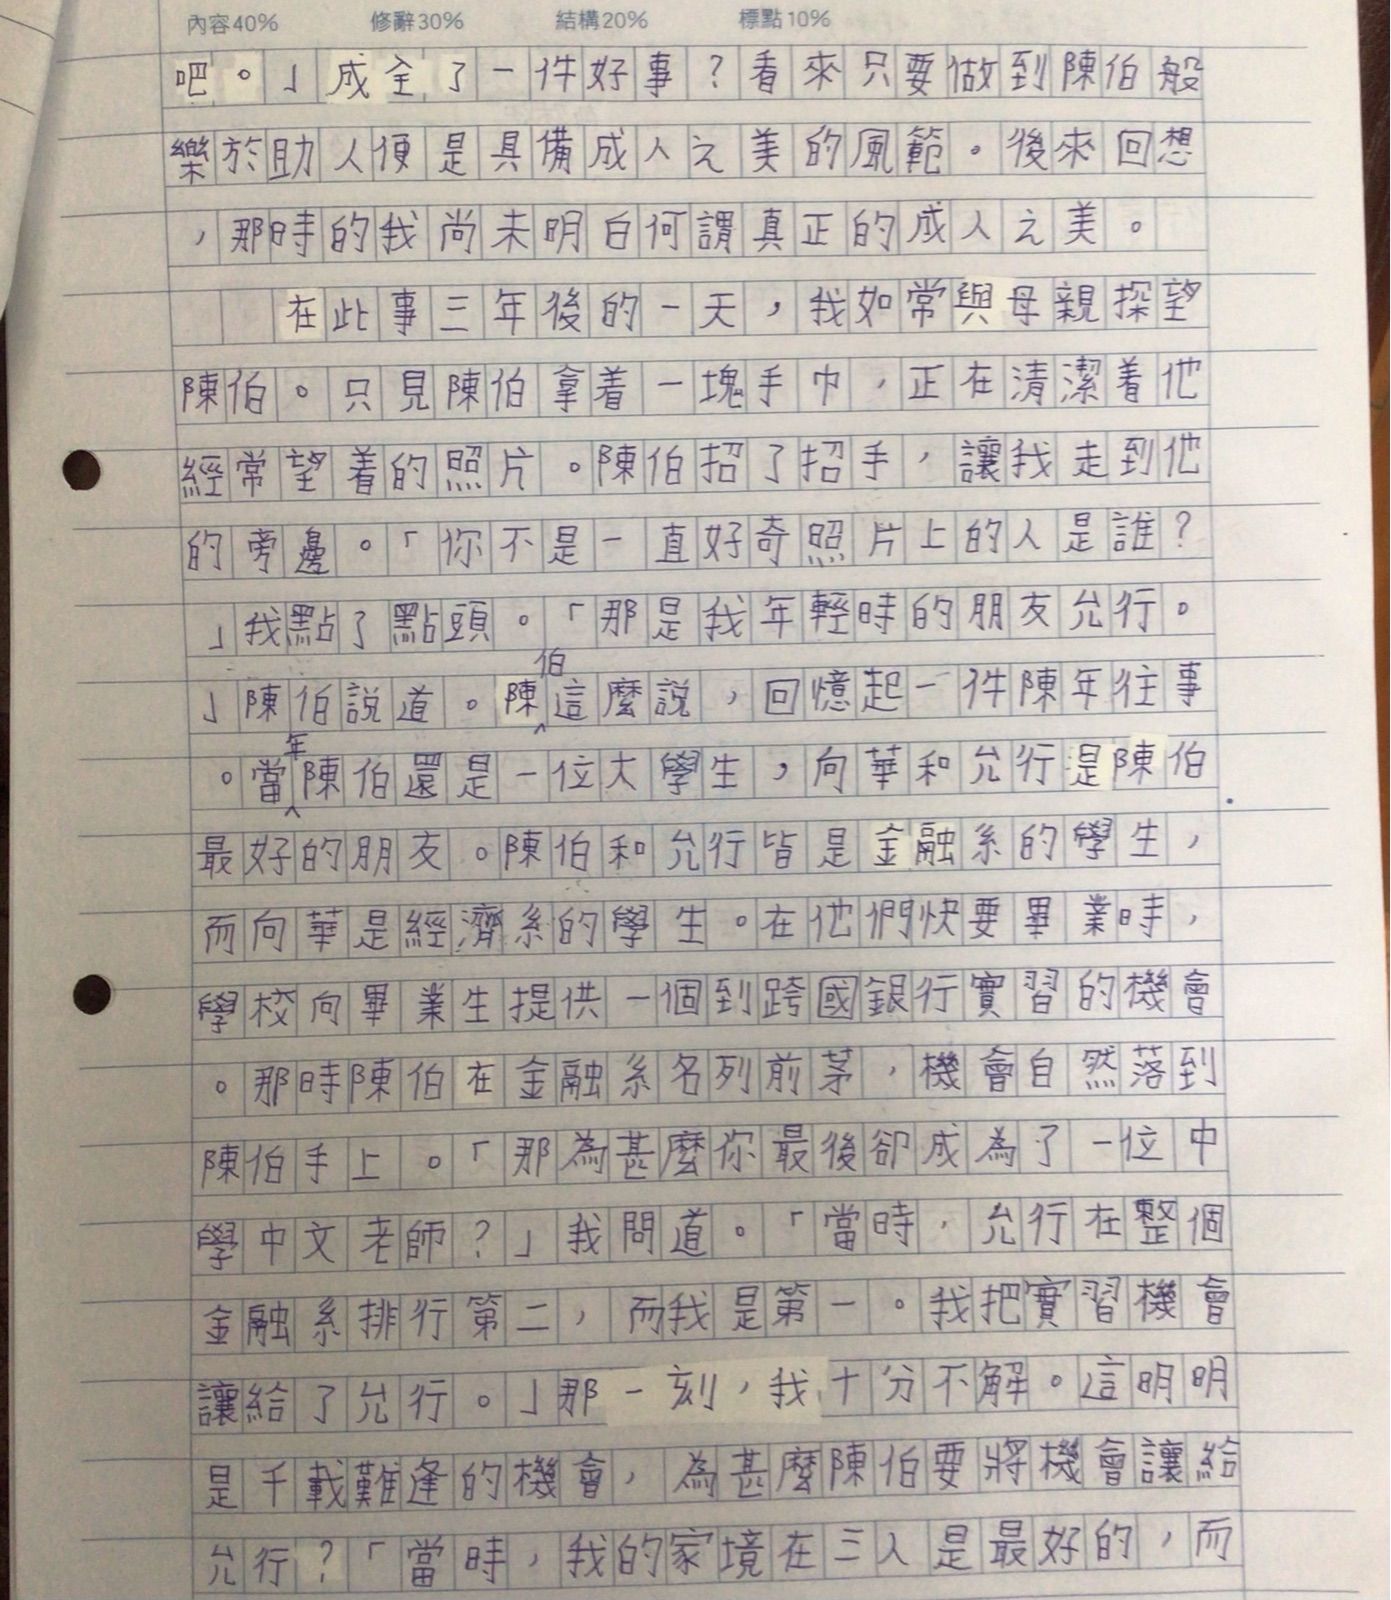 內容40% 修辭30% 結構20% 標點10%
吧。」成全了一件好事?看來只要做到陳伯般
樂於助人便是具備成人之美的風範。後來回想
,那時的我尚未明白何謂真正的成人之美。
在此事三年後的一天,我如常與母親探望
陳伯。只見陳伯拿着一塊手巾,正在清潔着他
經常望着的照片。陳伯招了招手,讓我走到他
的旁邊。「你不是一直好奇照片上的人是誰?
」我點了點頭。「那是我年輕時的朋友允行。
」陳伯說道。陳伯這麼說,回憶起一件陳年往事
。當年陳伯還是一位大學生,向華和允行是陳伯
最好的朋友。陳伯和允行皆是金融系的學生,
而向華是經濟系的學生。在他們快要畢業時,
學校向畢業生提供一個到跨國銀行實習的機會
。那時陳伯在金融系名列前茅,機會自然落到
陳伯手上。「那為甚麼你最後卻成為了一位中
學中文老師?」我問道。「當時,允行在整個
金融系排行第二,而我是第一。我把實習機會
讓給了允行。」那一刻,我十分不解。這明明
是千載難逢的機會,為甚麼陳伯要將機會讓給
允行?「當時,我的家境在三人是最好的,而